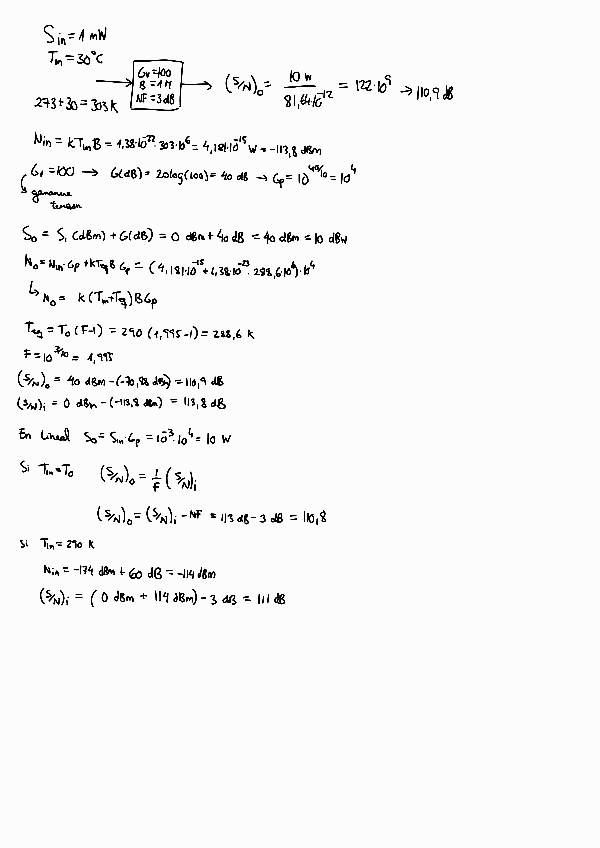 Sin = 1 mW
Tin = 30°C
273+30 = 303 K
Gv=100
B = 1 M
NF = 3 dB
(S/N)o = 10 W / 81,64·10^-12 = 122·10^9 → 110,9 dB
Nin = KTinB = 1,38·10^-23·303·10^6 = 4,181·10^-15 W = -113,8 dBm
Gv =100 → G(dB) = 20log(100) = 40 dB → Gp = 10^40/10 = 10^4
↳ ganancia
tension
So = Si (dBm) + G(dB) = 0 dBm + 40 dB = 40 dBm = 10 dBW
No = Nin·Gp + KTeqB Gp = (4,181·10^-15 + 1,38·10^-23·288,6·10^6)·10^4
↳ No = K (Tin+Teq) B Gp
Teq = To (F-1) = 290 (1,995-1) = 288,6 K
F = 10^3/10 = 1,995
(S/N)o = 40 dBm - (-70,88 dBm) = 110,9 dB
(S/N)i = 0 dBm - (-113,8 dBm) = 113,8 dB
En Lineal So = Sin·Gp = 10^-3·10^4 = 10 W
Si Tin = To (S/N)o = 1/F (S/N)i
(S/N)o = (S/N)i - NF = 113 dB - 3 dB = 110,8
Si Tin = 290 K
Nin = -174 dBm + 60 dB = -114 dBm
(S/N)i = (0 dBm + 114 dBm) - 3 dB = 111 dB